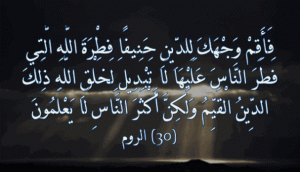 فَأَقِمْ وَجْهَكَ لِلدِّينِ حَنِيفًا فِطْرَةَ اللَّهِ الَّتِي
فَطَرَ النَّاسَ عَلَيْهَا لَا تَبْدِيلَ لِخَلْقِ اللَّهِ ذَلِكَ
الدِّينُ الْقَيِّمُ وَلَكِنَّ أَكْثَرَ النَّاسِ لَا يَعْلَمُونَ
(30) الروم